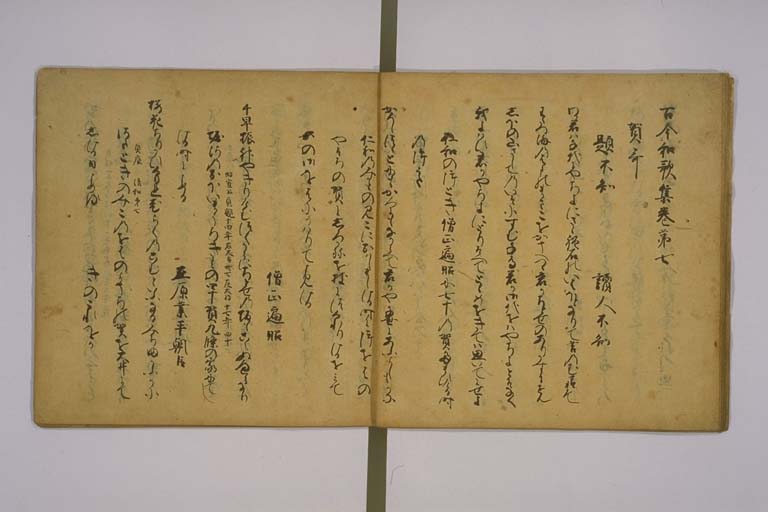 古今和歌集巻第七
賀哥
題不知 讀人不知
わか君は千代にやちよにさゝれ石のいはほとなりて苔のむすまて
わたつ海のはまのまさこをかそへつゝ君かちとせのありかすにせん
しほの山さしてのいそにすむ千鳥君か御代をはやちよとそなく
我よはひ君かやちよにとりそへてとゝめをきては思いてにせよ
仁和の御とき僧正遍昭に七十の賀給ひける時
の御哥
かくしつゝとにもかくにもなからへて君かやちよにあふよしもかな
仁和のみかとのみこにおはしましける時に御をはの
やそちの賀にしろかねを杖につくれりけるをみて
かの御をはにかはりてよみける
僧正遍昭
千早振神やきりけむつくからにちとせの坂もこえぬへら也
昭宣公 貞観十四年右大臣
堀河のおほいまうちきみの四十賀九條の家にて
しける時よめる
在原業平朝臣
桜花ちりかひくもれ老らくのこむといふなるみちまかふかに
貞辰 清和第七
さたときのみこのをはのよそちの賀を大井にて
しける日よめる きのこれをか